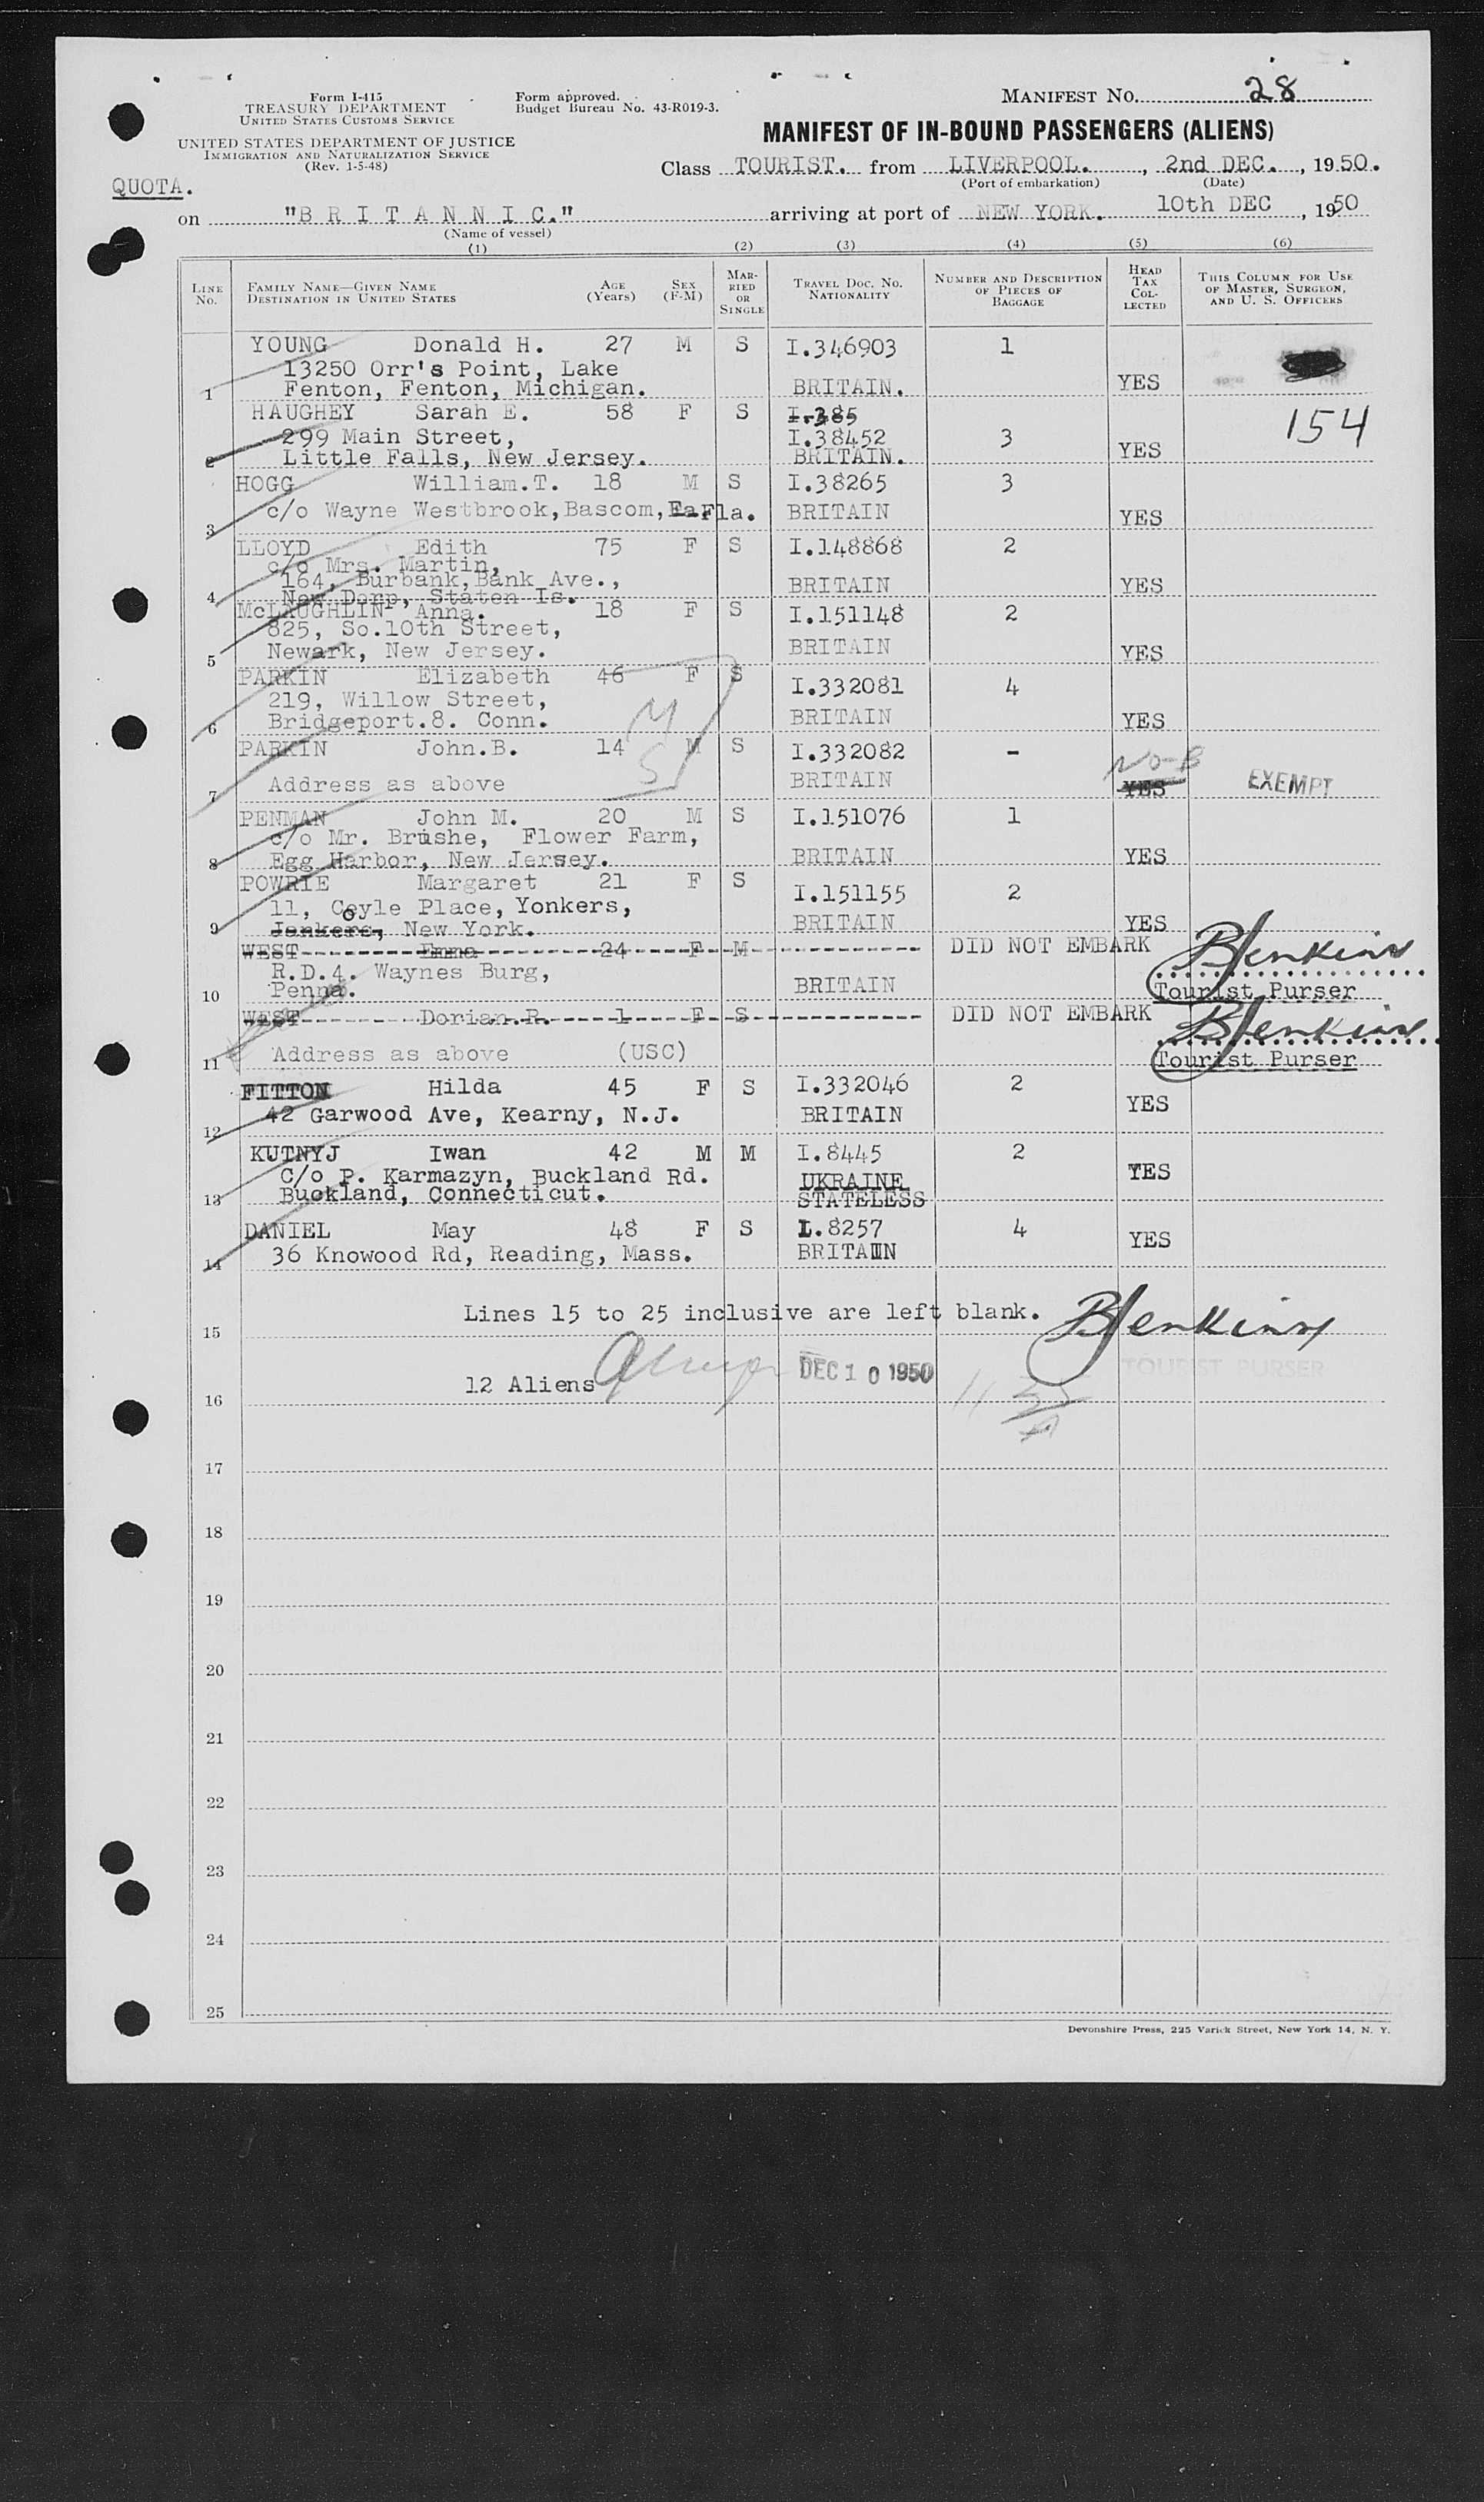 Form I-415
TREASURY DEPARTMENT
UNITED STATES CUSTOMS SERVICE
UNITED STATES DEPARTMENT OF JUSTICE
IMMIGRATION AND NATURALIZATION SERVICE
(Rev. 1-5-48)
Form approved.
Budget Bureau No. 43-R019-3.
MANIFEST NO. 28
MANIFEST OF IN-BOUND PASSENGERS (ALIENS)
Class TOURIST. from LIVERPOOL. , 2nd DEC. , 1950.
(Port of embarkation) (Date)
QUOTA.
on "B R I T A N N I C." arriving at port of NEW YORK. 10th DEC , 1950
(Name of vessel)
(1) (2) (3) (4) (5) (6)
LINE No. FAMILY NAME—GIVEN NAME DESTINATION IN UNITED STATES AGE (Years) SEX (F-M) MARRIED OR SINGLE TRAVEL DOC. NO. NATIONALITY NUMBER AND DESCRIPTION OF PIECES OF BAGGAGE HEAD TAX COLLECTED THIS COLUMN FOR USE OF MASTER, SURGEON, AND U. S. OFFICERS
YOUNG Donald H. 27 M S I.346903 1
13250 Orr's Point, Lake
1 Fenton, Fenton, Michigan. BRITAIN. YES
HAUGHEY Sarah E. 58 F S I.385
299 Main Street, I.38452 3 154
2 Little Falls, New Jersey. BRITAIN. YES
HOGG William.T. 18 M S I.38265 3
c/o Wayne Westbrook,Bascom,Ea.Fla. BRITAIN
3 YES
LLOYD Edith 75 F S I.148868 2
c/o Mrs. Martin,
164, Burbank,Bank Ave., BRITAIN YES
4 New Dorp, Staten Is.
McLAUGHLIN Anna. 18 F S I.151148 2
825, So.10th Street,
5 Newark, New Jersey. BRITAIN YES
PARKIN Elizabeth 46 F S I.332081 4
219, Willow Street, M
6 Bridgeport.8. Conn. BRITAIN YES
PARKIN John.B. 14 M S I.332082 -
S No-B
7 Address as above BRITAIN YES EXEMPT
PENMAN John M. 20 M S I.151076 1
c/o Mr. Brushe, Flower Farm,
8 Egg Harbor, New Jersey. BRITAIN YES
POWRIE Margaret 21 F S I.151155 2
11, Coyle Place, Yonkers,
9 Jenkers, New York. BRITAIN YES
WEST Emma 24 F M DID NOT EMBARK BJenkins
R.D.4. Waynes Burg,
10 Penna. BRITAIN Tourist Purser
WEST Dorian.R. 1 F S DID NOT EMBARK BJenkins
11 Address as above (USC) Tourist Purser
FITTON Hilda 45 F S I.332046 2
12 42 Garwood Ave, Kearny, N.J. BRITAIN YES
KUTNYJ Iwan 42 M M I.8445 2
C/o P. Karmazyn, Buckland Rd. UKRAINE YES
13 Buckland, Connecticut. STATELESS
DANIEL May 48 F S I.8257 4
14 36 Knowood Rd, Reading, Mass. BRITAIN YES
Lines 15 to 25 inclusive are left blank. BJenkins
15
TOURIST PURSER
12 Aliens DEC 10 1950
16
17
18
19
20
21
22
23
24
25
Devonshire Press, 225 Varick Street, New York 14, N. Y.